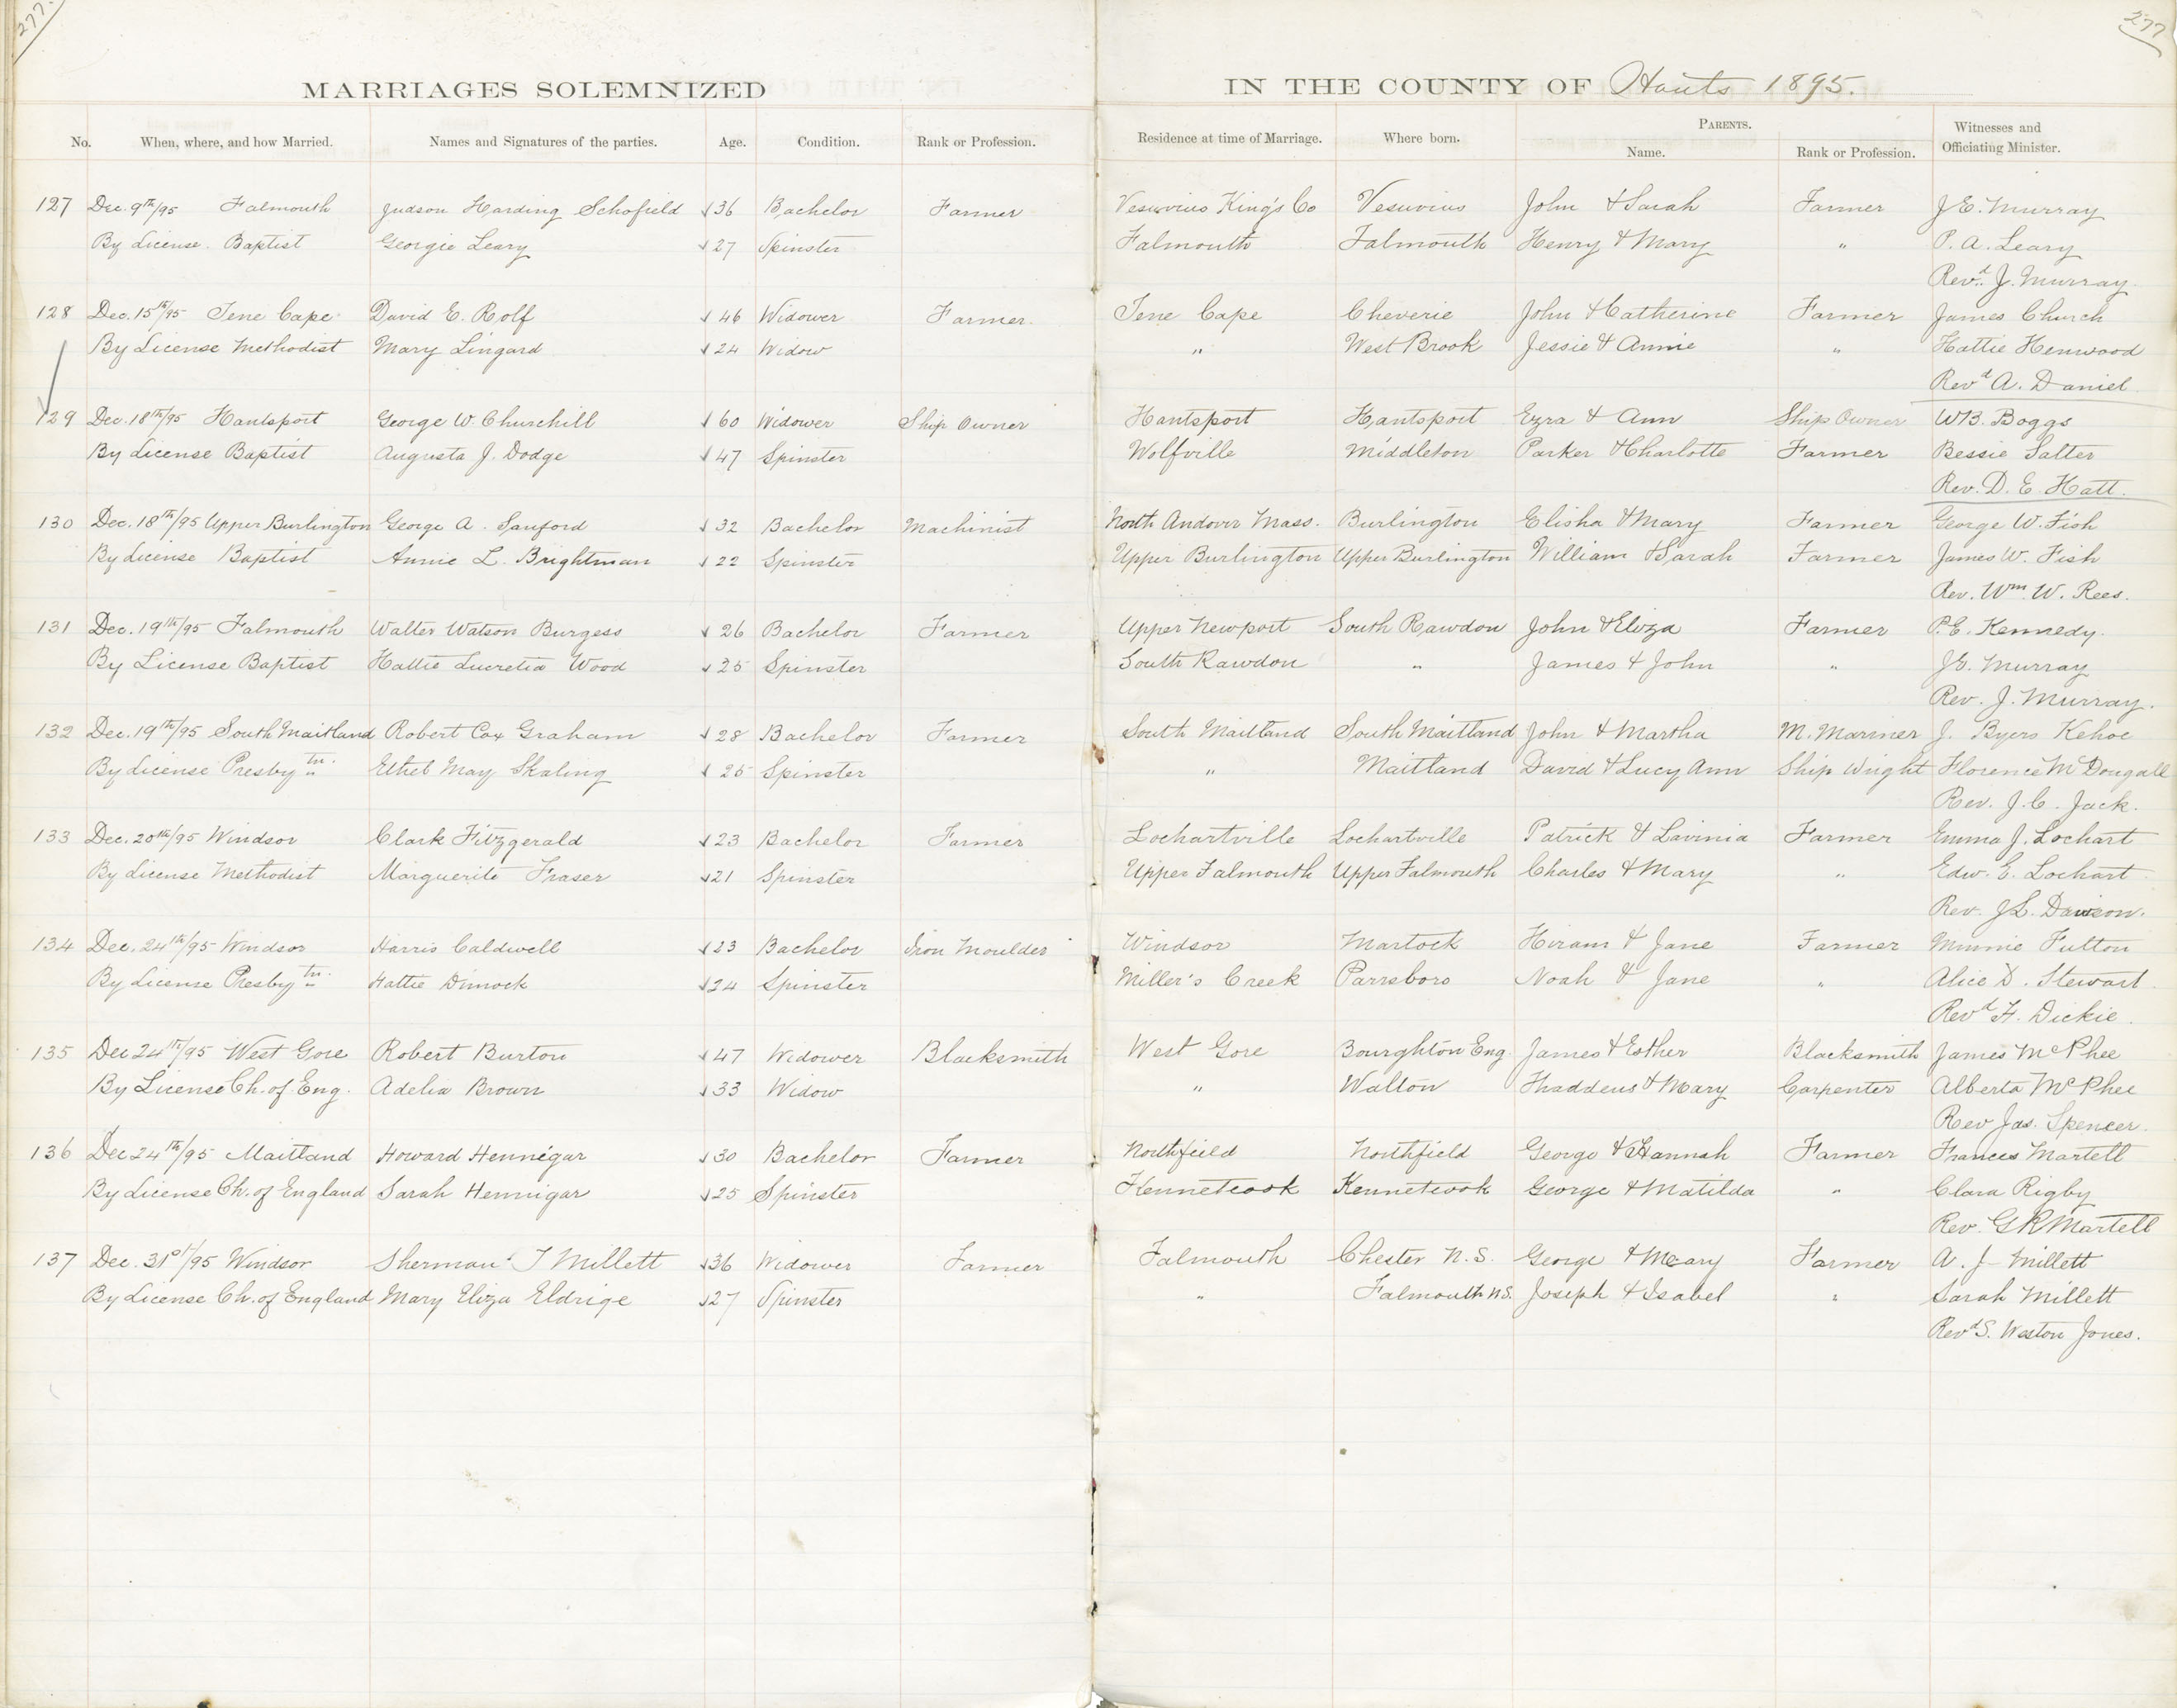 277. 277
MARRIAGES SOLEMNIZED IN THE COUNTY OF Hants 1895.
No. When, where, and how Married. Names and Signatures of the parties. Age. Condition. Rank or Profession. Residence at time of Marriage. Where born. PARENTS. Name. Rank or Profession. Witnesses and Officiating Minister.
127 Dec. 9th/95 Falmouth Judson Harding Schofield √36 Bachelor Farmer Vesuvius King's Co Vesuvius John & Sarah Farmer J.E. Murray
By License. Baptist Georgie Leary √27 Spinster Falmouth Falmouth Henry & Mary " P. A. Leary
Revd. J. Murray.
128 Dec. 15th/95 Tene Cape David E. Rolf √46 Widower Farmer. Tene Cape Cheverie John & Catherine Farmer James Church
By License Methodist Mary Lingard √24 Widow " West Brook Jessie & Annie " Hattie Henwood
Revd A. Daniel
129 Dec. 18th/95 Hantsport George W. Churchill √60 Widower Ship Owner Hantsport Hantsport Ezra & Ann Ship Owner W.B. Boggs
By License Baptist Augusta J. Dodge √47 Spinster Wolfville Middleton Parker & Charlotte Farmer Bessie Salter
Rev. D. E. Hatt.
130 Dec. 18th/95 Upper Burlington George A. Sanford √32 Bachelor Machinist North Andover Mass. Burlington Elisha & Mary Farmer George W. Fish
By License Baptist Annie L. Brightman √22 Spinster Upper Burlington Upper Burlington William & Sarah Farmer James W. Fish
Rev. Wm. W. Rees.
131 Dec. 19th/95 Falmouth Walter Watson Burgess √26 Bachelor Farmer Upper Newport South Rawdon John & Eliza Farmer P.E. Kennedy.
By License Baptist Hattie Lucretia Wood √25 Spinster South Rawdon " James & John " J.E. Murray
Rev. J. Murray.
132 Dec. 19th/95 South Maitland Robert Cox Graham √28 Bachelor Farmer South Maitland South Maitland John & Martha M. Mariner J. Byers Kehoe
By License Presbytn. Ethel May Skaling √25 Spinster " Maitland David & Lucy Ann Ship Wright Florence McDougall
Rev. J. C. Jack.
133 Dec. 20th/95 Windsor Clark Fitzgerald √23 Bachelor Farmer Lochartville Lochartville Patrick & Lavinia Farmer Emma J. Lochart
By License Methodist Marguerite Fraser √21 Spinster Upper Falmouth Upper Falmouth Charles & Mary " Edw. E. Lochart
Rev. J.L. Dawson.
134 Dec. 24th/95 Windsor Harris Caldwell √23 Bachelor Iron Moulder Windsor Martock Hiram & Jane Farmer Minnie Fulton
By License Presbytn. Hattie Dimock √24 Spinster Miller's Creek Parrsboro Noah & Jane " Alice D. Stewart.
Revd H. Dickie.
135 Dec 24th/95 West Gore Robert Burton √47 Widower Blacksmith West Gore Bourghton Eng. James & Esther Blacksmith James McPhee
By License Ch. of Eng. Adelia Brown √33 Widow " Walton Thaddeus & Mary Carpenter Alberta McPhee
Rev Jas. Spencer.
136 Dec 24th/95 Maitland Howard Hennigar √30 Bachelor Farmer Northfield Northfield George & Hannah Farmer Frances Martell
By License Ch. of England Sarah Hennigar √25 Spinster Kennetcook Kennetcook George & Matilda " Clara Rigby
Rev. G R Martell
137 Dec. 31st/95 Windsor Sherman T Millett √36 Widower Farmer Falmouth Chester N.S. George & Mary Farmer A. J. Millett
By License Ch. of England Mary Eliza Eldrige √27 Spinster " Falmouth N.S. Joseph & Isabel " Sarah Millett
Revd S. Weston Jones.